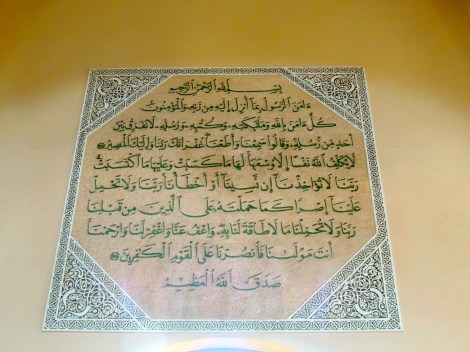 بسم الله الرحمن الرحيم
ءَامَنَ ٱلرَّسُولُ بِمَآ أُنزِلَ إِلَيْهِ مِن رَّبِّهِۦ وَٱلْمُؤْمِنُونَ
كُلٌّ ءَامَنَ بِٱللَّهِ وَمَلَٰٓئِكَتِهِۦ وَكُتُبِهِۦ وَرُسُلِهِۦ لَا نُفَرِّقُ بَيْنَ
أَحَدٍ مِّن رُّسُلِهِۦ وَقَالُوا۟ سَمِعْنَا وَأَطَعْنَا غُفْرَانَكَ رَبَّنَا وَإِلَيْكَ ٱلْمَصِيرُ
لَا يُكَلِّفُ ٱللَّهُ نَفْسًا إِلَّا وُسْعَهَا لَهَا مَا كَسَبَتْ وَعَلَيْهَا مَا ٱكْتَسَبَتْ
رَبَّنَا لَا تُؤَاخِذْنَآ إِن نَّسِينَآ أَوْ أَخْطَأْنَا رَبَّنَا وَلَا تَحْمِلْ
عَلَيْنَآ إِصْرًا كَمَا حَمَلْتَهُۥ عَلَى ٱلَّذِينَ مِن قَبْلِنَا
رَبَّنَا وَلَا تُحَمِّلْنَا مَا لَا طَاقَةَ لَنَا بِهِۦ وَٱعْفُ عَنَّا وَٱغْفِرْ لَنَا وَٱرْحَمْنَآ
أَنتَ مَوْلَىٰنَا فَٱنصُرْنَا عَلَى ٱلْقَوْمِ ٱلْكَٰفِرِينَ
صَدَقَ ٱللَّهُ ٱلْعَظِيمُ